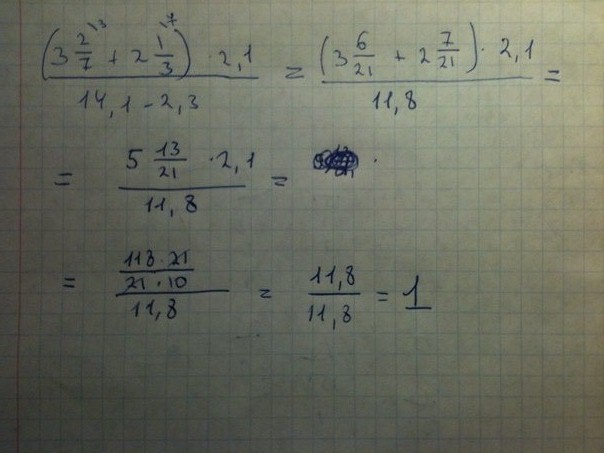 ((3 2/7 \3 + 2 1/3 \7) · 2,1) / (14,1 - 2,3) = ((3 6/21 + 2 7/21) · 2,1) / 11,8 =
= (5 13/21 · 2,1) / 11,8 = ·
= ((118 · 21) / (21 · 10)) / 11,8 = 11,8 / 11,8 = 1